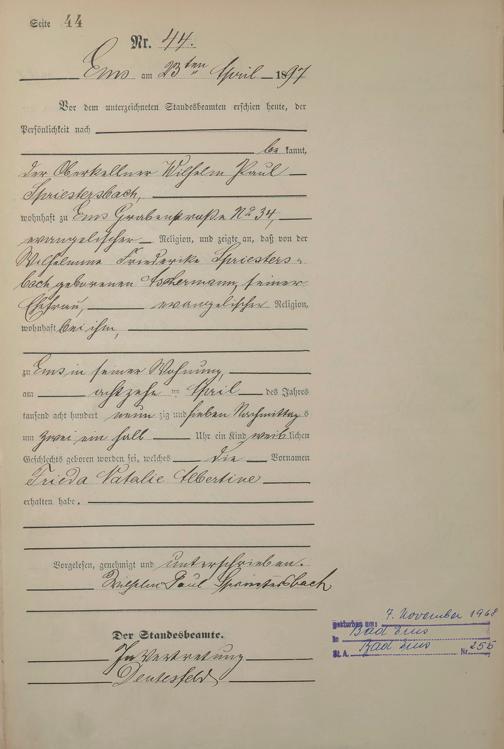 Seite 44
Nr. 44.
Ems am 23ten April 1897
Vor dem unterzeichneten Standesbeamten erschien heute, der
Persönlichkeit nach
be kannt,
der Oberkellner Wilhelm Paul
Spriestersbach,
wohnhaft zu Ems Grabenstraße No 34,
evangelischer Religion, und zeigte an, daß von der
Wilhelmine Friederike Spriesters-
bach geborenen Aschermann, seiner
Ehefrau, evangelischer Religion,
wohnhaft bei ihm,
zu Ems in seiner Wohnung,
am achtzehn = April des Jahres
tausend acht hundert neun zig und sieben Nachmittag s
um zwei ein halb Uhr ein Kind weib lichen
Geschlechts geboren worden sei, welches die Vornamen
Frieda Natalie Albertine
erhalten habe.
Vorgelesen, genehmigt und unterschrieben.
Wilhelm Paul Spriestersbach
Der Standesbeamte.
In Vertretung
gestorben am: 7. November 1968
in Bad Ems
St. A. Bad Ems Nr. 255